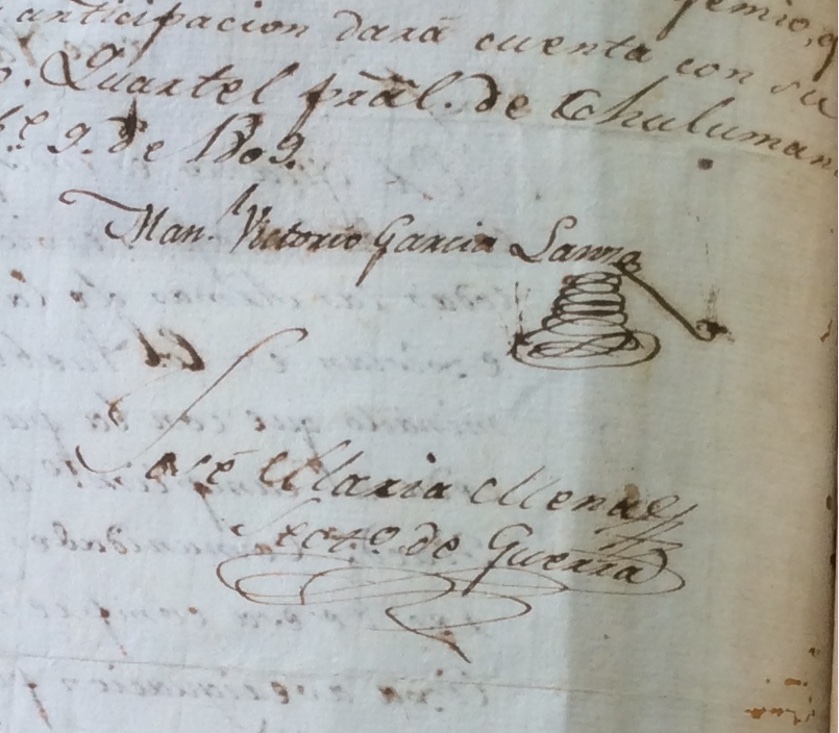 anticipacion dará cuenta con su
Quartel prãl. de Chulumani
9. de 1809.
Man.l Victorio Garcia Lanza
José Maria Mena
Secto. de Guerra